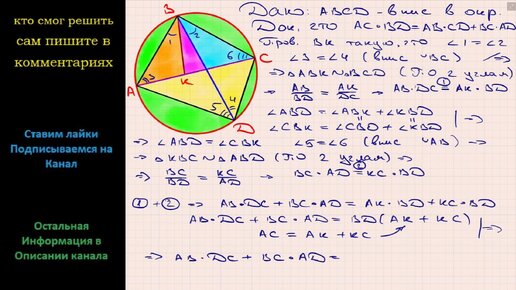 кто смог решить
сам пишите в
комментариях
Ставим лайки
Подписываемся на
Канал
Остальная
Информация в
Описании канала
B
1 2
A
3
K
6
C
5 4
D
Дано: ABCD - впис в окр.
Док. что AC·BD=AB·CD+BC·AD
Пров. BK такую, что ∠1=∠2
∠3=∠4 (впис ∪BC) ⇒
⇒ △ABK∾△BCD (по 2 углам) ⇒
⇒ AB/BD = AK/DC ⇒ AB·DC ①= AK·BD
∠ABD = ∠ABK+∠KBD
∠CBK = ∠CBD+∠KBD |⇒
⇒ ∠ABD=∠CBK ∠5=∠6 (впис ∪AB) ⇒
⇒ △KBC∾△ABD (по 2 углам) ⇒
⇒ BC/BD = KC/AD ⇒ BC·AD ②= KC·BD
①+② ⇒ AB·DC+BC·AD=AK·BD+KC·BD
AB·DC+BC·AD=BD(AK+KC)
AC=AK+KC |⇒
⇒ AB·DC+BC·AD=